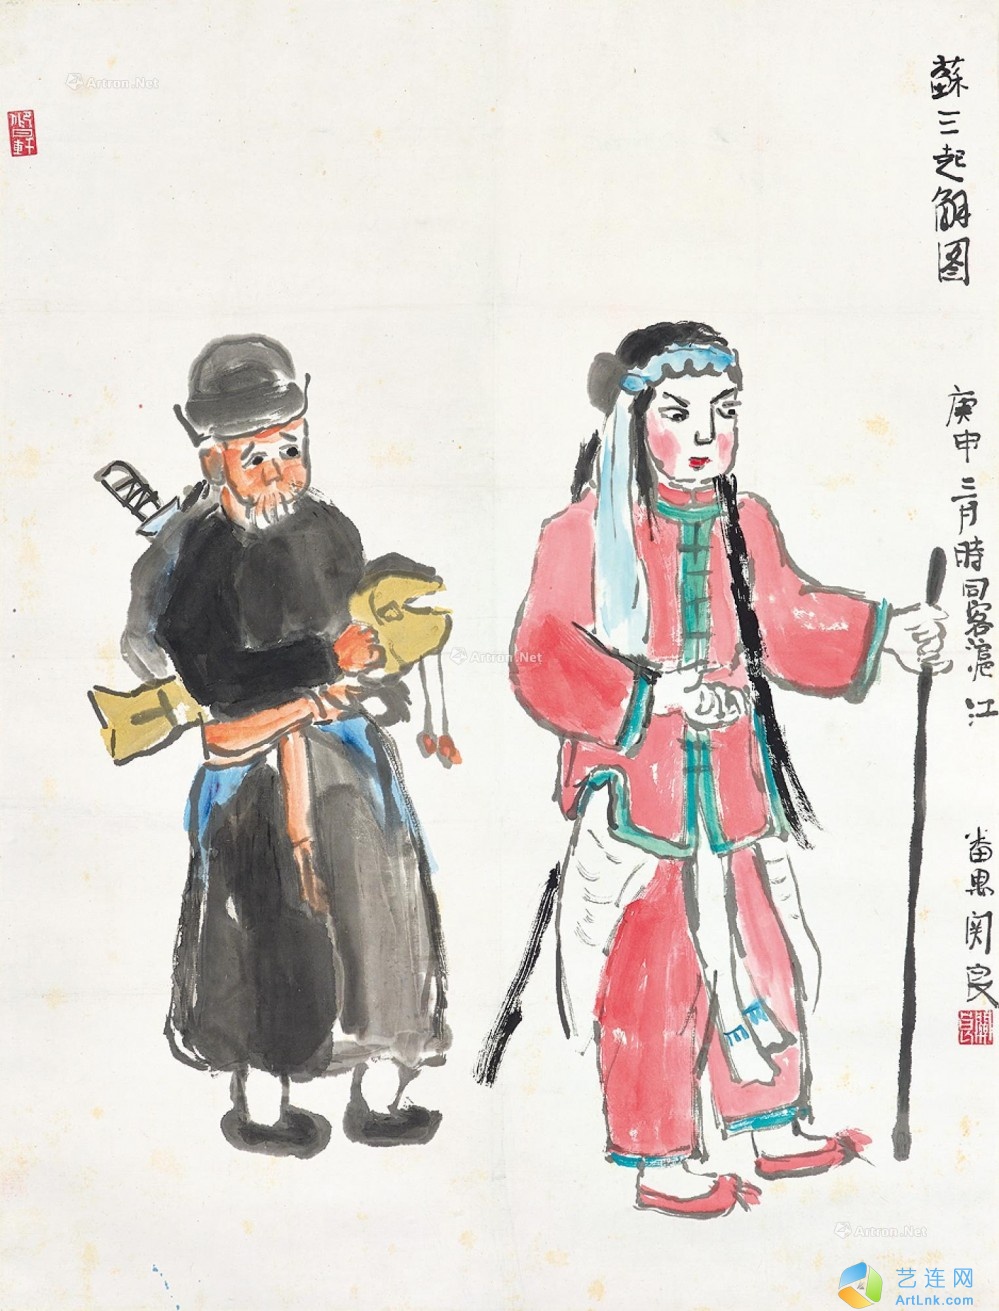 蘇三起解图
庚申二月時同客滬江
番禺関良
Artron.Net
Artron.Net
Artron.Net
艺连网
ArtLnk.com